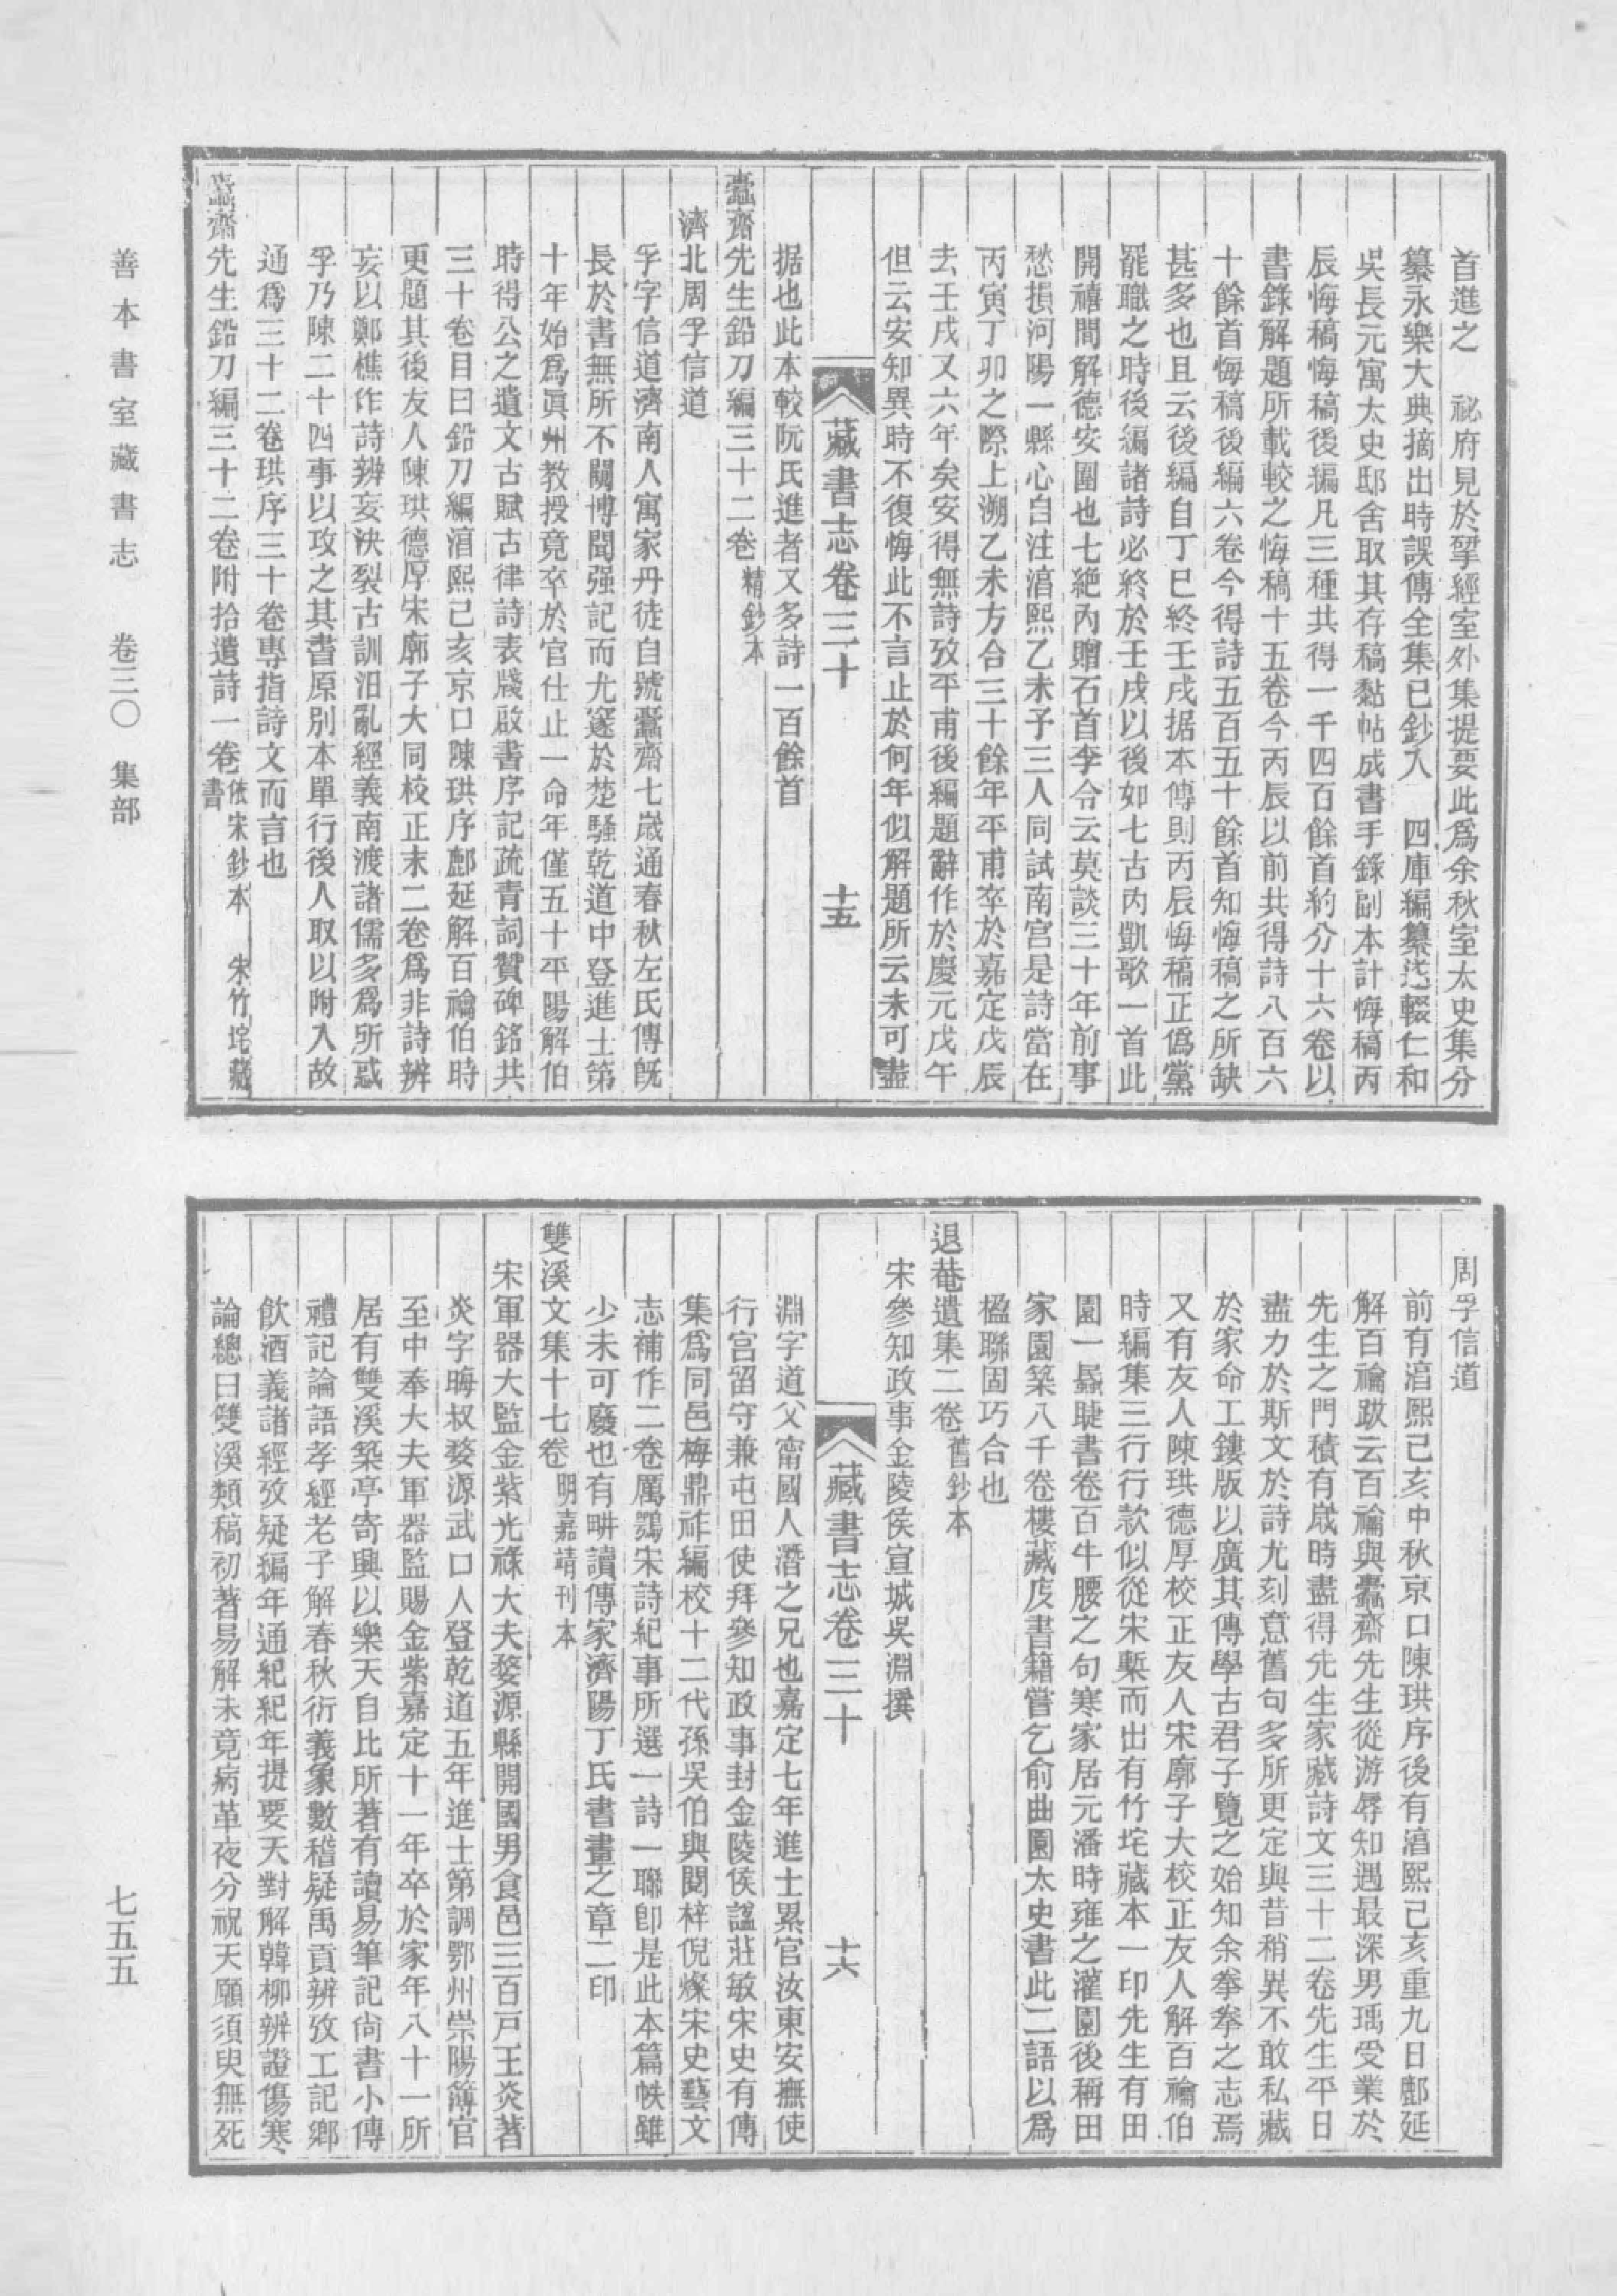 首進之　祕府見於揅經室外集提要此爲余秋室太史集分
纂永樂大典摘出時誤傳全集已鈔入　四庫編纂迻輟仁和
吳長元寓太史邸舍取其存稿黏帖成書手錄副本計悔稿丙
辰悔稿悔稿後編凡三種共得一千四百餘首約分十六卷以
書錄解題所載較之悔稿十五卷今丙辰以前共得詩八百六
十餘首悔稿後編六卷今得詩五百五十餘首知悔稿之所缺
甚多也且云後編自丁巳終壬戌据本傳則丙辰悔稿正僞黨
罷職之時後編諸詩必終於壬戌以後如七古內凱歌一首此
開禧間解德安圍也七絕內贈石首李令云莫談三十年前事
愁損河陽一縣心自注淯熙乙未予三人同試南宮是詩當在
丙寅丁卯之際上溯乙未方合三十餘年平甫卒於嘉定戊辰
去壬戌又六年矣安得無詩攷平甫後編題辭作於慶元戊午
但云安知異時不復悔此不言止於何年似解題所云未可盡
藏書志卷三十　十五
据也此本較阮氏進者又多詩一百餘首
蠹齋先生鉛刀編三十二卷精鈔本
濟北周孚信道
孚字信道濟南人寓家丹徒自號蠹齋七嵗通春秋左氏傳旣
長於書無所不闚博聞强記而尤邃於楚騷乾道中登進士第
十年始爲眞州教授竟卒於官仕止一命年僅五十平陽解伯
時得公之遺文古賦古律詩表牋啟書序記疏青詞贊碑銘共
三十卷目曰鉛刀編淯熙己亥京口陳珙序鄜延解百禴伯時
更題其後友人陳珙德厚宋廓子大同校正末二卷爲非詩辨
妄以鄭樵作詩辨妄決裂古訓汨亂經義南渡諸儒多爲所惑
孚乃陳二十四事以攻之其書原別本單行後人取以附入故
通爲三十二卷珙序三十卷專指詩文而言也
蠹齋先生鉛刀編三十二卷附拾遺詩一卷依宋鈔本　朱竹垞藏書
周孚信道
前有淯熙己亥中秋京口陳珙序後有淯熙己亥重九日鄜延
解百禴跋云百禴與蠹齋先生從游辱知遇最深男瑀受業於
先生之門積有嵗時盡得先生家藏詩文三十二卷先生平日
盡力於斯文於詩尤刻意舊句多所更定與昔稍異不敢私藏
於家命工鏤版以廣其傳學古君子覽之始知余拳拳之志焉
又有友人陳珙德厚校正友人宋廓子大校正友人解百禴伯
時編集三行行款似從宋槧而出有竹垞藏本一印先生有田
園一㬪睫書卷百牛腰之句寒家居元潘時雍之灌園後稱田
家園築八千卷樓藏庋書籍嘗乞俞曲園太史書此二語以爲
楹聯固巧合也
退菴遺集二卷舊鈔本
宋參知政事金陵侯宣城吳淵撰
藏書志卷三十　十六
淵字道父甯國人潛之兄也嘉定七年進士累官汝東安撫使
行宮留守兼屯田使拜參知政事封金陵侯諡莊敏宋史有傳
集爲同邑梅鼎祚編校十二代孫吳伯與閱梓倪燦宋史藝文
志補作二卷厲鶚宋詩紀事所選一詩一聯卽是此本篇帙雖
少未可廢也有畊讀傳家濟陽丁氏書畫之章二印
雙溪文集十七卷明嘉靖刊本
宋軍器大監金紫光祿大夫婺源縣開國男食邑三百戶王炎著
炎字晦叔婺源武口人登乾道五年進士第調鄂州崇陽簿官
至中奉大夫軍器監賜金紫嘉定十一年卒於家年八十一所
居有雙溪築亭寄興以樂天自比所著有讀易筆記尙書小傳
禮記論語孝經老子解春秋衍義象數稽疑禹貢辨攷工記鄉
飲酒義諸經攷疑編年通紀紀年提要天對解韓柳辨證傷寒
論總曰雙溪類稿初著易解未竟病革夜分祝天願須臾無死
善本書室藏書志　卷三〇　集部
七五五